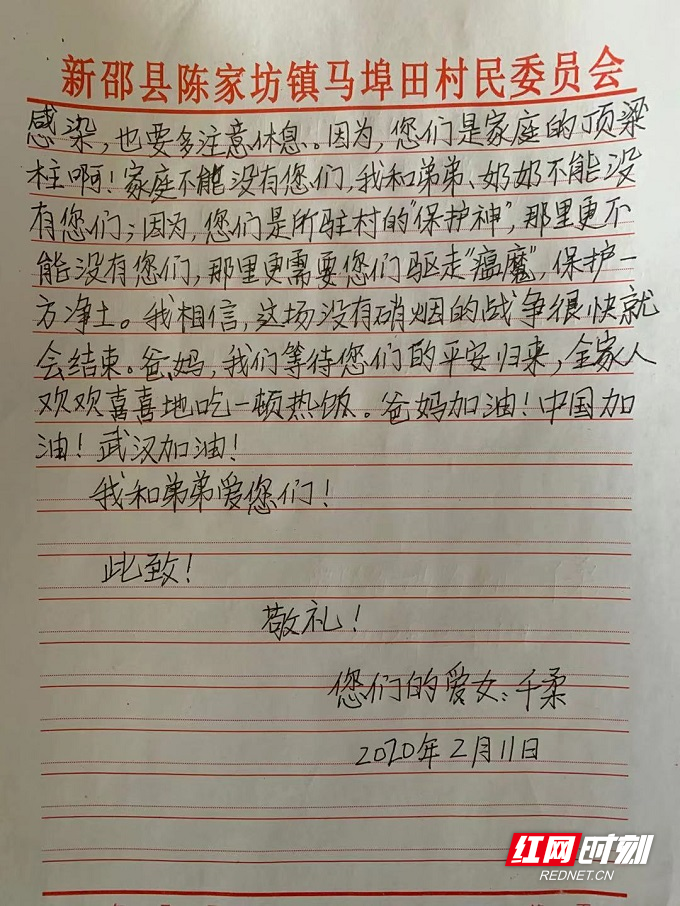 新邵县陈家坊镇马埠田村民委员会
感染，也要多注意休息。因为，您们是家庭的顶梁
柱啊！家庭不能没有您们，我和弟弟、奶奶不能没
有您们；因为，您们是所驻村的“保护神”，那里更不
能没有您们，那里更需要您们驱走“瘟魔”，保护一
方净土。我相信，这场没有硝烟的战争很快就
会结束。爸、妈，我们等待您们的平安归来，全家人
欢欢喜喜地吃一顿热饭。爸妈加油！中国加
油！武汉加油！
我和弟弟爱您们！
此致！
敬礼！
您们的爱女：千柔
2020年2月11日
红网时刻
REDNET.CN